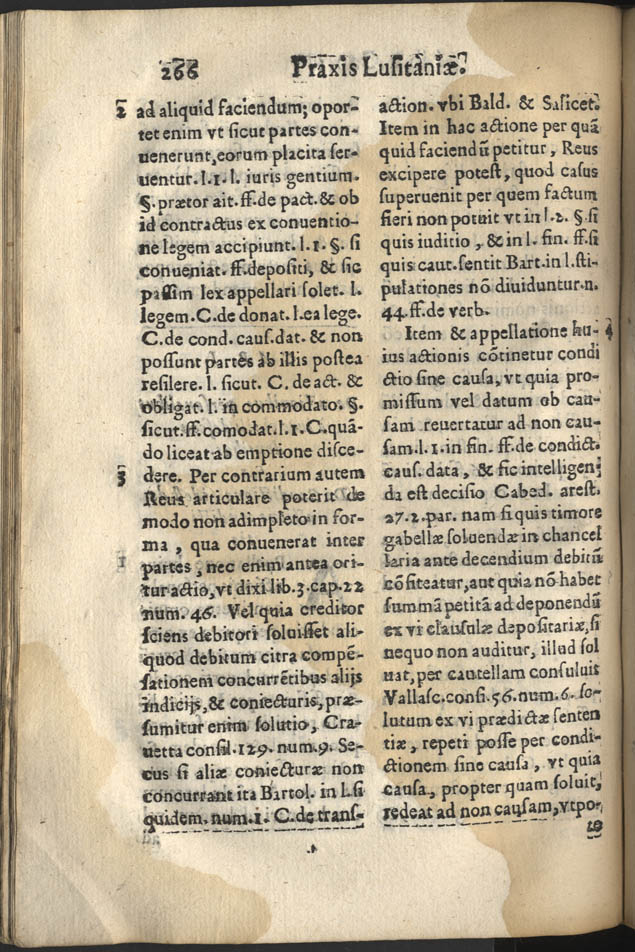 266 Praxis Lusitaniæ.
2 ad aliquid faciendum; opor-
tet enim vt sicut partes con-
uenerunt, eorum placita ser-
uentur. l. 1. l. iuris gentium.
§. prætor ait. ff. de pact. & ob
id contractus ex conuentio-
ne legem accipiunt. l. 1. §. si
conueniat. ff. depositi, & sic
passim lex appellari solet. l.
legem. C. de donat. l. ea lege.
C. de cond. caus. dat. & non
possunt partes ab illis postea
resilere. l. sicut. C. de act. &
obligat. l. in commodato. §.
sicut. ff. comodat. l. 1. C. quã-
do liceat ab emptione disce-
3 dere. Per contrarium autem
Reus articulare poterit de
modo non adimpleto in for-
ma, qua conuenerat inter
1 partes, nec enim antea ori-
tur actio, vt dixi lib. 3. cap. 22
num. 46. Vel quia creditor
sciens debitori soluisset ali-
quod debitum citra compẽ-
sationem concurrẽtibus alijs
indicijs, & coniecturis, præ-
sumitur enim solutio, Cra-
uetta consil. 129. num. 9. Se-
cus si aliæ coniecturæ non
concurrant ita Bartol. in l. si
quidem. num. 1. C. de trans-
action. vbi Bald. & Salicet.
Item in hac actione per quã
quid faciendũ petitur, Reus
excipere potest, quod casus
superuenit per quem factum
fieri non potuit vt in l. 2. §. si
quis iuditio, & in l. fin. ff. si
quis caut. sentit Bart. in l. sti-
pulationes nõ diuiduntur. n.
44. ff. de verb.
Item & appellatione hu- 4
ius actionis cõtinetur condi
ctio sine causa, vt quia pro-
missum vel datum ob cau-
sam reuertatur ad non cau-
sam. l. 1. in fin. ff. de condict.
caus. data, & sic intelligen-
da est decisio Cabed. arest.
27. 2. par. nam si quis timore
gabellæ soluendæ in chancel
laria ante decendium debitũ
cõfiteatur, aut quia nõ habet
summã petitã ad deponendũ
ex vi clausulæ depositariæ, si
nequo non auditur, illud sol
uat, per cautellam consuluit
Vallasc. consi. 56. num. 6. so-
lutum ex vi prædictæ senten
tiæ, repeti posse per condi-
ctionem sine causa, vt quia
causa, propter quam soluit,
redeat ad non causam, vt po-